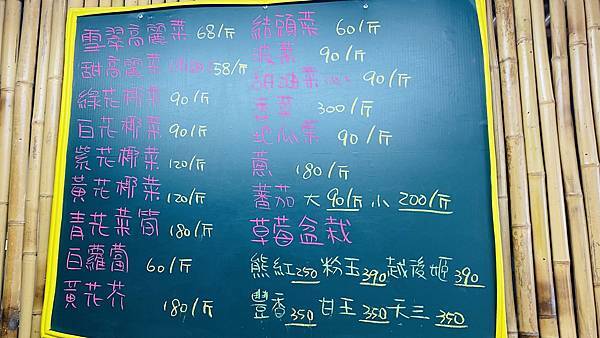 雪翠高麗菜 68/斤
甜高麗菜 58/斤
綠花椰菜 90/斤
白花椰菜 90/斤
紫花椰菜 120/斤
黃花椰菜 120/斤
青花菜筍 180/斤
白蘿蔔 60/斤
黃花芥 180/斤
結頭菜 60/斤
波菜 90/斤
甜油菜心 90/斤
香菜 300/斤
地瓜葉 90/斤
蔥 180/斤
蕃茄 大 90/斤 小 200/斤
草莓盆栽
熊紅250 粉玉390 越後姬390
豐香350 甘王350 天三350